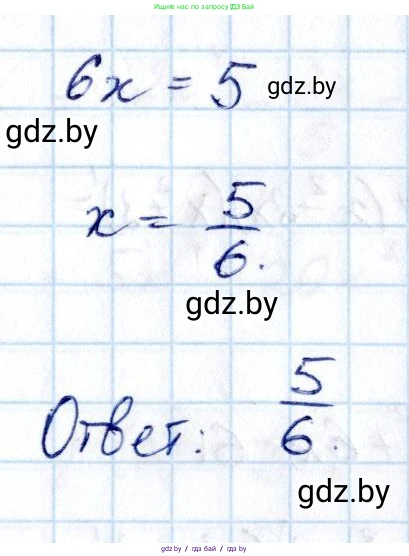 Ищите нас по запросу ГДЗ Бай
6x = 5 gdz.by
gdz.by
x = 5/6.
gdz.by
Ответ: 5/6.
gdz.by
gdz.by / гдз бай / gdz by